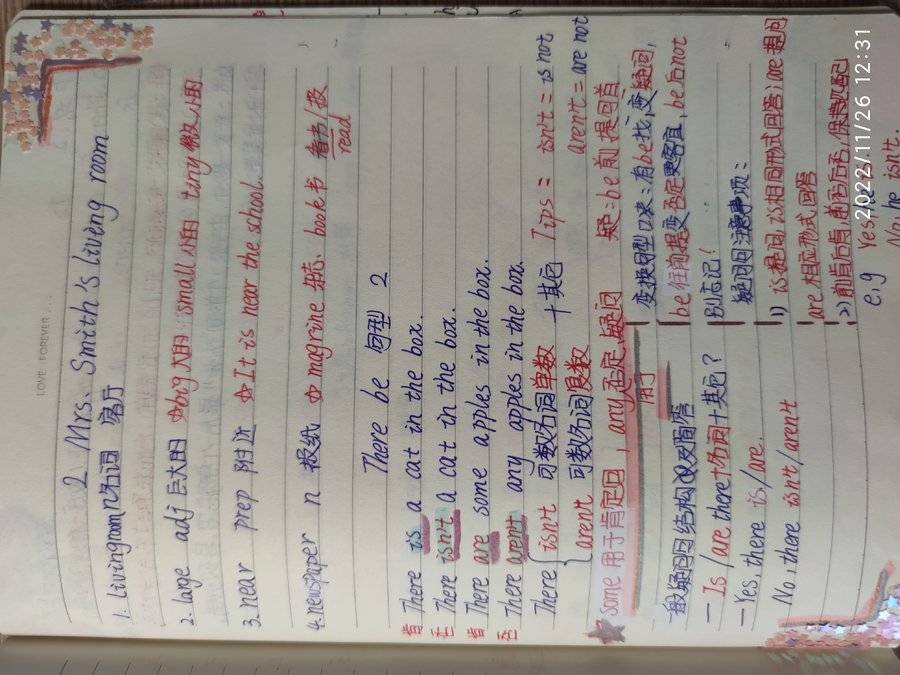 LOVE FOREVER ...
2 Mrs. Smith's living room
1. livingroom n名词 客厅
2. large adj 巨大的 ☆big 大的 small 小的 tiny 微小的
3. near prep 附近 ☆It is near the school.
4. newspaper n 报纸 ☆magrine 杂志、book 书 看书/报
read
There be 句型 2
肯 There is a cat in the box.
否 There isn't a cat in the box.
肯 There are some apples in the box.
否 There aren't any apples in the box.
There { isn't 可数名词单数 + 其它 Tips: isn't = is not
aren't 可数名词复数 aren't = are not
some 用于肯定回, any否定, 疑问 疑:be前提句首
用于
一般疑问句结构以及回答
— Is/are there+名词+其它?
— Yes, there is/are.
No, there isn't/aren't
变换句型口诀:有be找, 变疑问,
be往前提变否定更容易, be后not
别忘记!
疑问句注意事项:
1) is提问, is相同形式回答; are提问
are相应形式回答
2) 前肯后肯 前否后否, 保持匹配
e.g Yes, he is.
No, he isn't.
2022/11/26 12:31